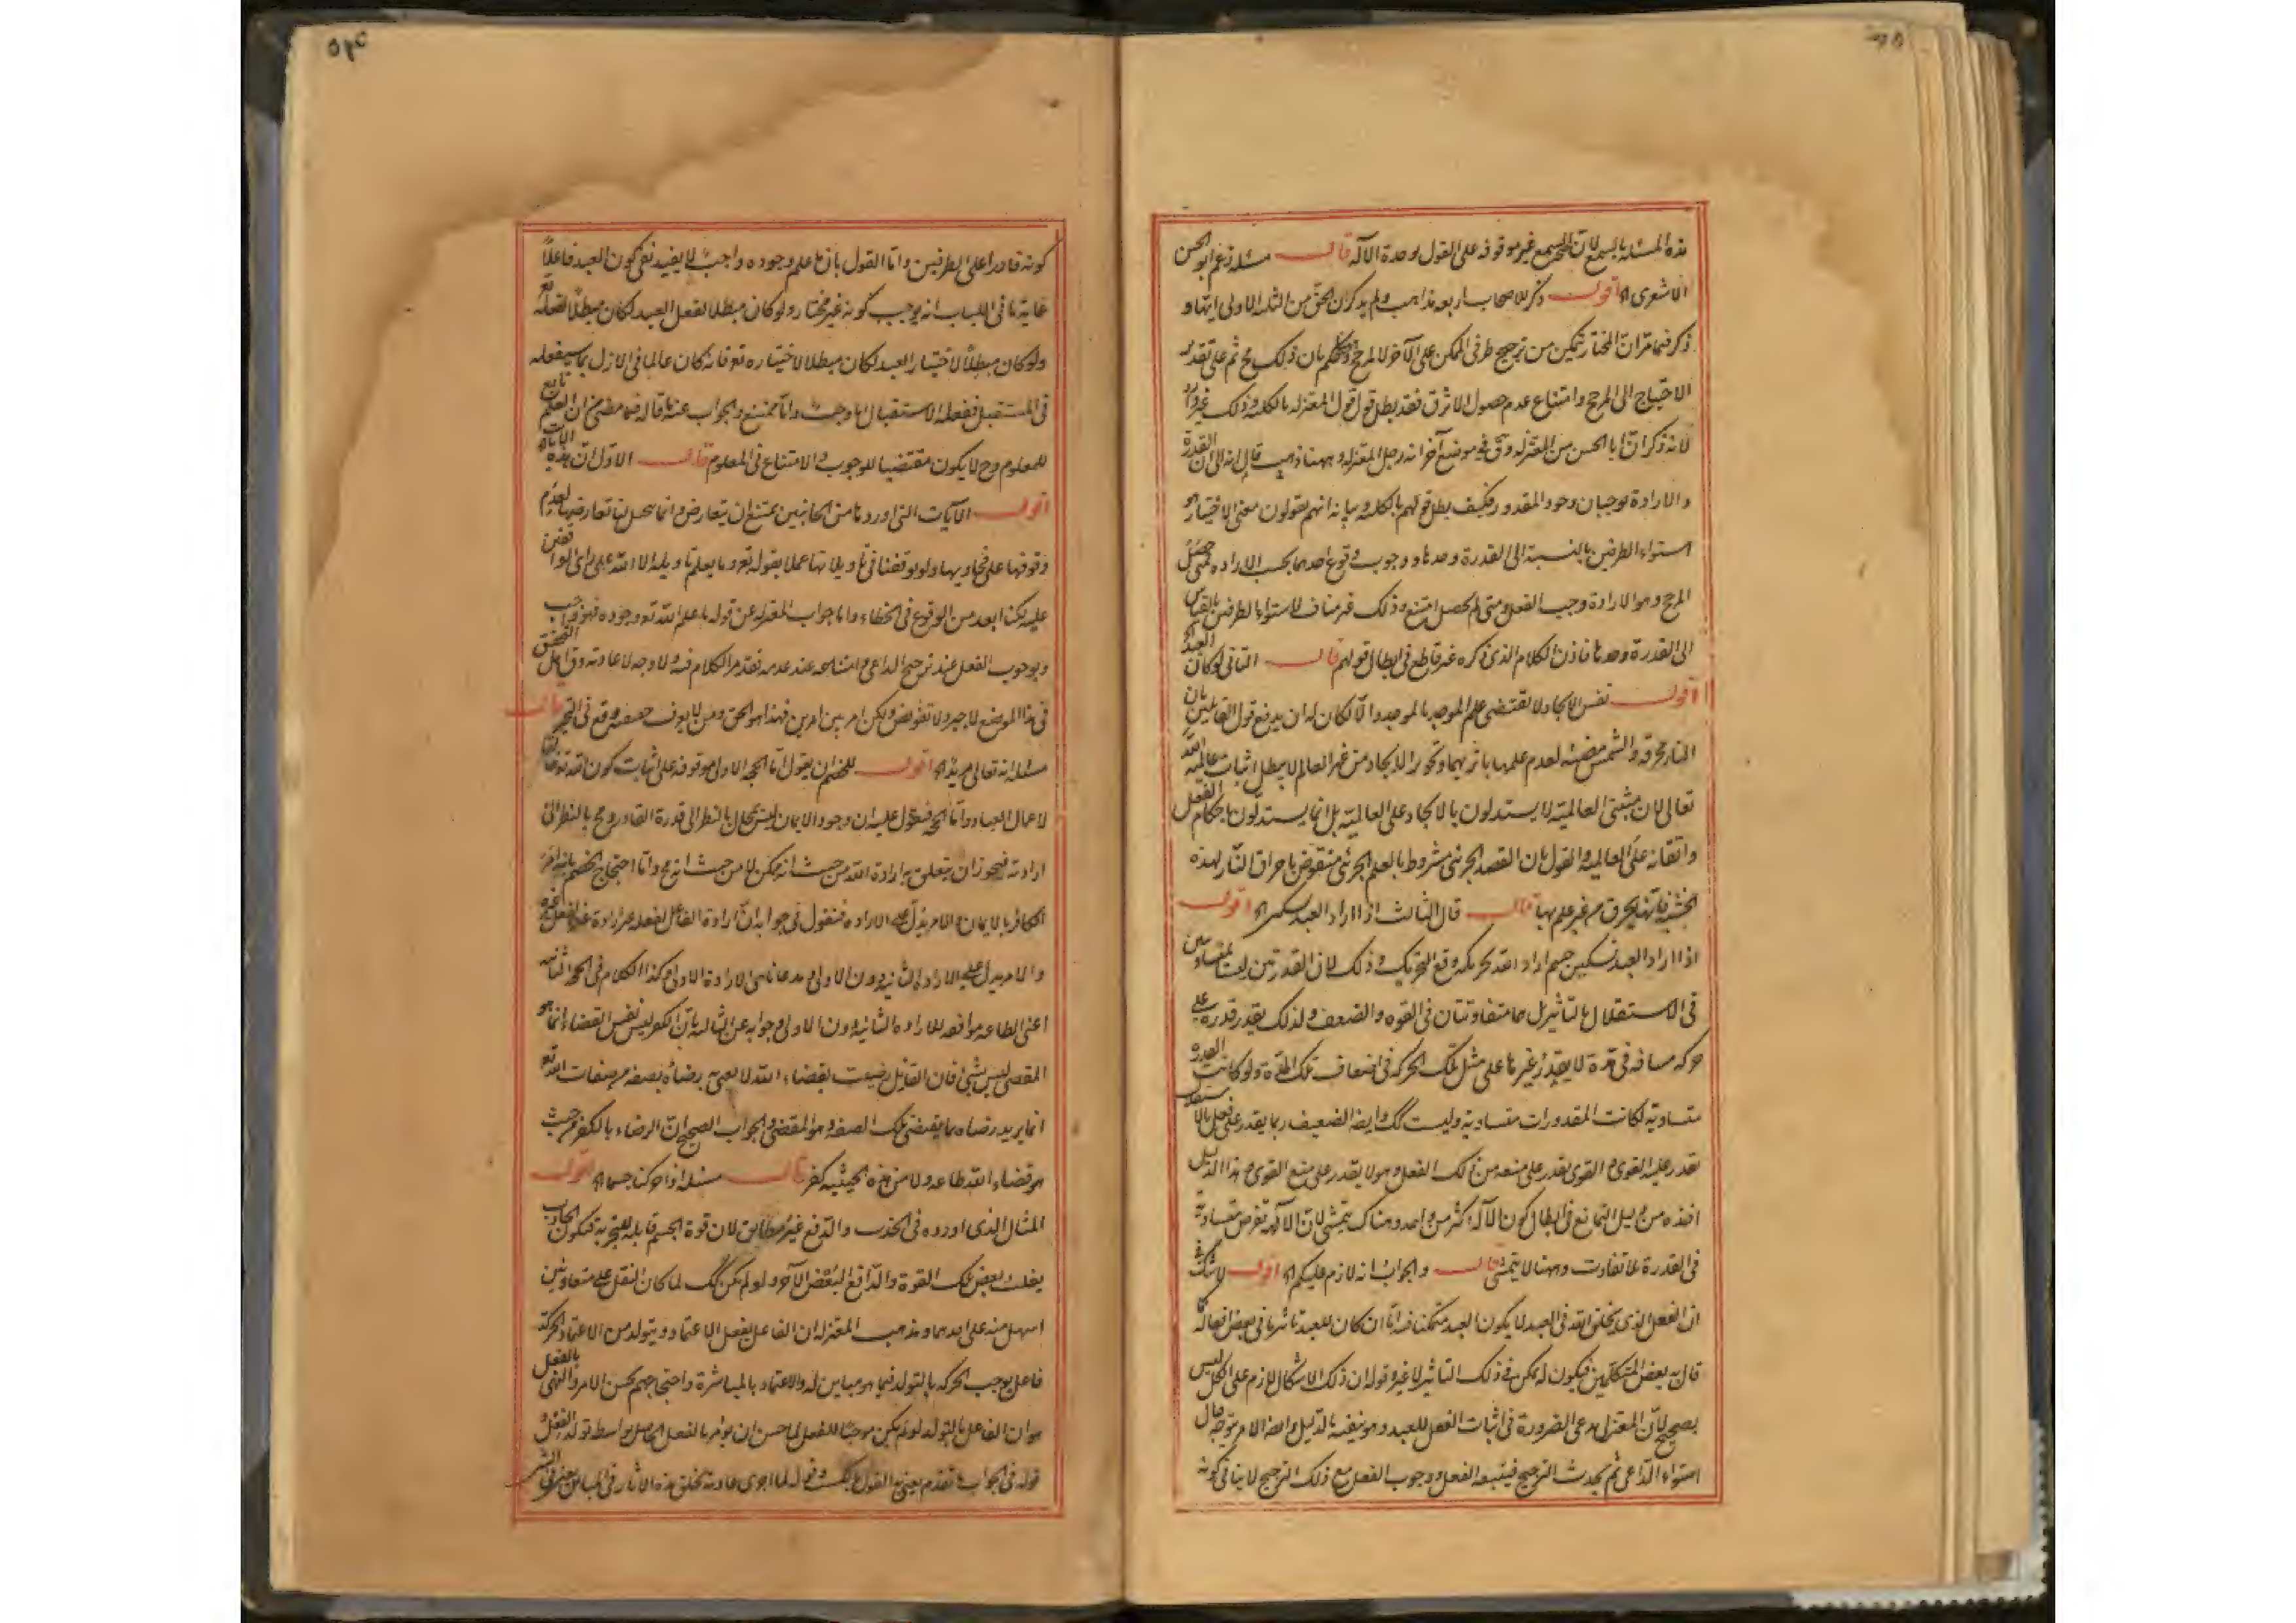 هذه المسئلة بالسمع لان صحة السمع غير موقوفة على القول بوحدة الآله قال مسئلة زعم ابو الحسن
الاشعرى اه اقول ذكر للاصحاب اربعة مذاهب ولم يذكر ان الحق من الثلثة الاولى ايها و
ذكر فيما مر ان المختار يتمكن من ترجيح طرفى الممكن على الآخر لا لمرجح وحكم بان ذلك مح ثم على تقدير
الاحتياج الى المرجح وامتناع عدم حصول الاثر فقد بطل قول المعتزلة بالكلية وذلك غير وارد
لانه ذكر ان ابا الحسن من المعتزلة وق فى موضع آخر انه رجل المعتزلة وههنا ذهب قال انه الى ان القدرة
والارادة توجبان وجود المقدور فكيف بطل قولهم بالكلية وبيانه انهم يقولون معنى الاختيار هو
استواء الطرفين بالنسبة الى القدرة وحدها ووجوب وقوع احدهما بحسب الارادة فمتى حصل
المرجح وهو الارادة وجب الفعل ومتى لم يحصل امتنع وذلك غير مناف لاستواء الطرفين بالقياس
الى القدرة وحدها فاذن الكلام الذى ذكره غير قاطع فى ابطال قولهم قال الثانى لو كان العبد اه
اقول نفس الايجاد لا يقتضى علم الموجد بالموجد والا لكان له ان يدفع قول القائلين بان
النار محرقة والشمس مضيئة لعدم علمهما باثريهما وتجويز الايجاد من غير العالم لا يبطل اثبات عالمية الله
تعالى لان مثبتى العالمية لا يستدلون بالايجاد على العالمية بل انما يستدلون باحكام الفعل
واتقانه على العالمية والقول بان القصد الجزئى مشروط بالعلم الجزئى منقوض باحراق النار لهذه
الخشبة فانها تحرق من غير علم بها قال قال الثالث اذا اراد العبد تسكين اه اقول
اذا اراد العبد تسكين جسم اراد الله تحريكه وقع التحريك وذلك لان القدرتين ليستا بمتساويتين
فى الاستقلال بالتأثير بل هما متفاوتتان فى القوة والضعف ولذلك يقدر قدرة على
حركة مسافة فى مدة لا يقدر غيرها على مثل تلك الحركة فى اضعاف تلك المدة ولو كانت القدرة
متساوية لكانت المقدورات متساوية وليست كك وايضا الضعيف ربما يقدر على فعل بالاستقلال
يقدر عليه القوى والقوى يقدر على منعه من ذلك الفعل وهو لا يقدر على منع القوى وهذا الدليل
اخذه من دليل التمانع فى ابطال كون الآله اكثر من واحد وهناك يتمشى لان الآلهة تفرض متساوية
فى القدرة بلا تفاوت وههنا لا يتمشى قال والجواب انه لازم عليكم اه اقول لا شك فى
ان الفعل الذى يخلق الله فى العبد لا يكون العبد متمكنا منه اما ان كان للعبد تأثير ما فى بعض افعاله كما
قال به بعض المتكلمين فيكون له تمكن فى ذلك التأثير لا غير وقوله ان ذلك الاشكال لازم على الكل ليس
بصحيح لان المعتزلى يدعى الضرورة فى اثبات الفعل للعبد وهو ينفيه بالدليل وايضا الامر يتوجه حال
استواء الداعى ثم يحدث الترجيح فيتبعه الفعل ووجوب الفعل مع ذلك الترجيح لا ينافى كونه
كونه قادرا على الطرفين واما القول بان ما علم وجوده واجب لا يفيد نفى كون العبد فاعلا
غاية ما فى الباب انه يوجب كونه غير مختار ولو كان مبطلا لفعل العبد لكان مبطلا لفعله تع
ولو كان مبطلا لاختيار العبد لكان مبطلا لاختياره تع فانه كان عالما فى الازل بما سيفعله
فى المستقبل ففعله الاستقبالى اما واجب واما ممتنع والجواب عنه ما قاله فيما مضى من ان العلم تابع
للمعلوم وح لا يكون مقتضيا للوجوب والامتناع فى المعلوم قال الاول ان هذه الآيات اه
اقول الآيات التى اوردها من الجانبين يمتنع ان يتعارض وانما يحمل لنا تعارضها لعدم
وقوفنا على فحاويها ولو توقفنا فى تأويلاتها عملا بقوله تع وما يعلم تأويله الا الله على رأى الواقفين
عليه لكنا ابعد من الوقوع فى الخطاء واما جواب المعتزلة عن قوله ما علم الله تع وجوده فهو واجب
وبوجوب الفعل عند ترجيح الداعى وامتناعه عند عدمه تقدم الكلام فيه ولا وجه لاعادته وق اهل التحقيق
فى هذا الموضع لا جبر ولا تفويض ولكن امر بين امرين فهذا هو الحق ومن لا يعرف حقيقته وقع فى التحير قال
مسئلة انه تعالى مريد اه اقول للخصم ان يقول اما الحجة الاولى موقوفة على اثبات كون الله تع خالقا
لاعمال العباد واما الحجة فنقول عليه ان وجود الايمان ليس بمحال بالنظر الى قدرة القادر ومح بالنظر الى
ارادته فيجوز ان يتعلق به ارادة الله من حيث انه ممكن لا من حيث انه مح واما احتجاج الخصم بانه امر
الكافر بالايمان والامر يدل على الارادة فنقول فى جوابه ان ارادة الفاعل لفعله غير ارادته لفعل غيره
والامر يدل على الارادة الثانية دون الاولى ومدعانا هى الارادة الاولى وكذا الكلام فى الحجة الثانية
اعنى الطاعة موافقة للارادة الثانية دون الاولى وجوابه عن الثالثة بان الكفر ليس نفس القضاء انما هو
المقضى ليس بشئ فان القائل رضيت بقضاء الله لا يعنى به رضاؤه بصفة من صفات الله تع
انما يريد رضاه بما يقتضى تلك الصفة وهو المقضى والجواب الصحيح ان الرضاء بالكفر من حيث
هو قضاء الله طاعة ولا من هذه الحيثية كفر قال مسئلة اذا حركنا جسما اه اقول
المثال الذى اورده فى الجذب والدفع غير مطابق لان قوة الجسم قابلة للتجزية فيكون الجاذب
يفعل ببعض تلك القوة والدافع البعض الآخر ولو لم يكن كك لما كان النقل على متعاونين
اسهل منه على احدهما ومذهب المعتزلة ان الفاعل يفعل الاعتماد ويتولد من الاعتماد الحركة
فاعل يوجب الحركة بالتولد فيما هو مباين له والاعتماد بالمباشرة واحتجاجهم بحسن الامر والنهى بالفعل
هو ان الفاعل بالتولد لو لم يكن موجبا للفعل لما حسن ان يؤمر بالفعل الحاصل بواسطة تولد الفعل و
قوله فى الجواب ما تقدم يعنى به القول بالكسب وقوله لما اجرى عادته بخلق هذه الآثار فى المباين